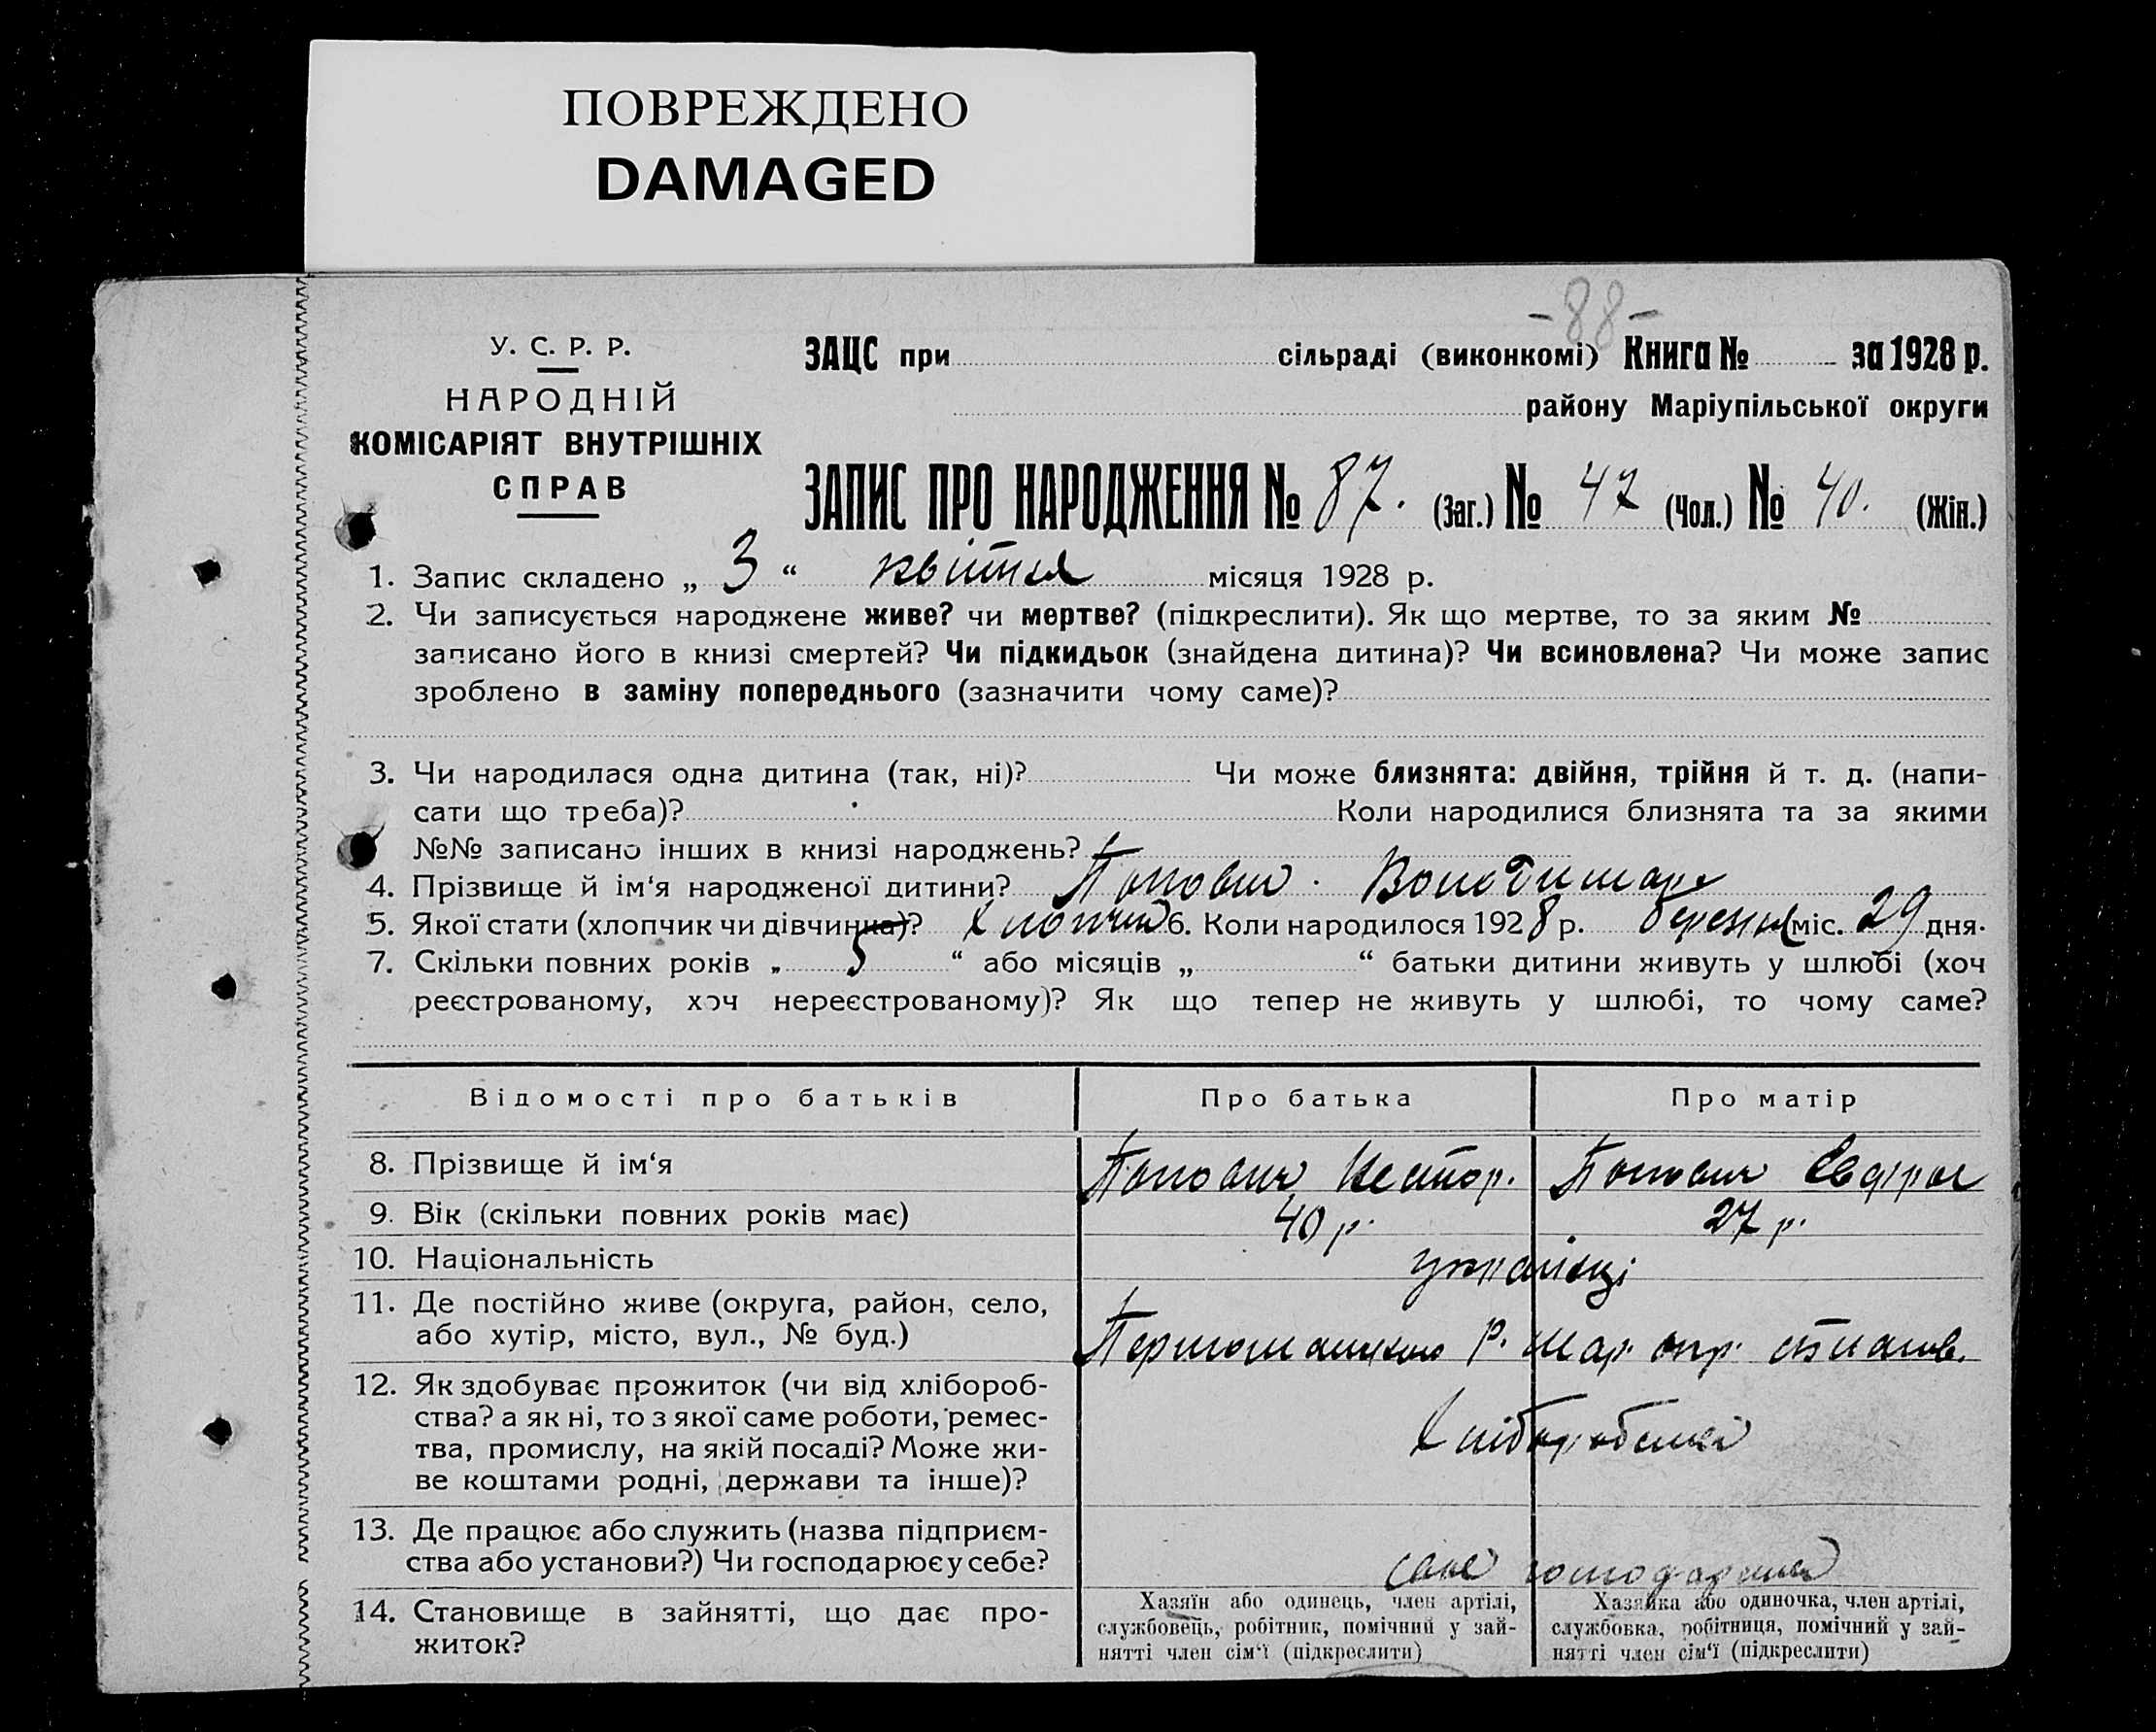 ПОВРЕЖДЕНО
DAMAGED
-88-
У. С. Р. Р.
НАРОДНІЙ
КОМІСАРІЯТ ВНУТРІШНІХ
СПРАВ
ЗАЦС при сільраді (виконкомі) Книга № за 1928 р.
району Маріупільської округи
ЗАПИС ПРО НАРОДЖЕННЯ № 87. (Заг.) № 47 (Чол.) № 40. (Жін.)
1. Запис складено „ 3 “ квітня місяця 1928 р.
2. Чи записується народжене живе? чи мертве? (підкреслити). Як що мертве, то за яким №
записано його в книзі смертей? Чи підкидьок (знайдена дитина)? Чи всиновлена? Чи може запис
зроблено в заміну попереднього (зазначити чому саме)?
3. Чи народилася одна дитина (так, ні)? Чи може близнята: двійня, трійня й т. д. (напи-
сати що треба)? Коли народилися близнята та за якими
№№ записано інших в книзі народжень?
4. Прізвище й ім‘я народженої дитини? Попович Володимар
5. Якої стати (хлопчик чи дівчинка)? Хлопчик 6. Коли народилося 1928 р. березня міс. 29 дня.
7. Скільки повних років „ 5 “ або місяців „ “ батьки дитини живуть у шлюбі (хоч
реєстрованому, хоч нереєстрованому)? Як що тепер не живуть у шлюбі, то чому саме?
Відомості про батьків Про батька Про матір
8. Прізвище й ім‘я Попович Нестор. Попович
9. Вік (скільки повних років має) 40 р. 27 р.
10. Національність українці
11. Де постійно живе (округа, район, село,
або хутір, місто, вул., № буд.) Р. Мар. окр.
12. Як здобуває прожиток (чи від хлібороб-
ства? а як ні, то з якої саме роботи, ремес-
тва, промислу, на якій посаді? Може жи-
ве коштами родні, держави та інше)?
13. Де працює або служить (назва підприєм-
ства або установи?) Чи господарює у себе?
14. Становище в зайнятті, що дає про-
житок?
Хазяїн або одинець, член артілі,
службовець, робітник, помічний у зай-
нятті член сім‘ї (підкреслити)
Хазяйка або одиночка, член артілі,
службовка, робітниця, помічний у зай-
нятті член сім‘ї (підкреслити)